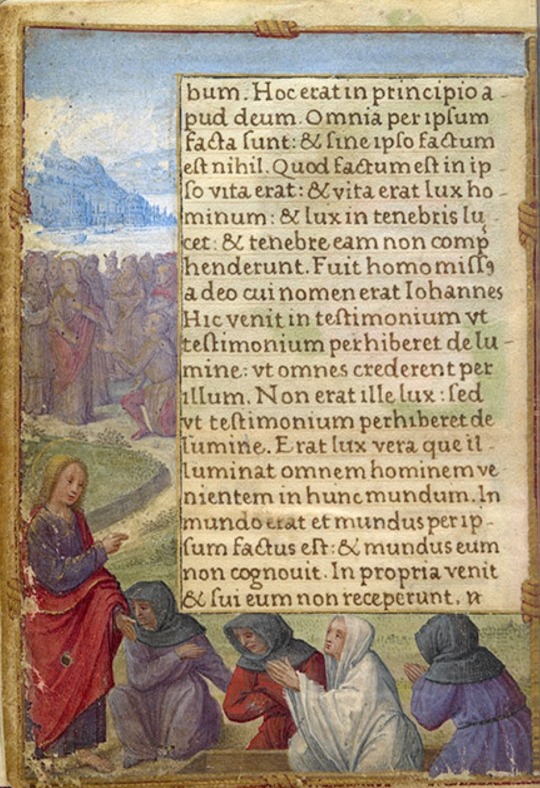 bum. Hoc erat in principio a
pud deum. Omnia per ipsum
facta sunt: & sine ipso factum
est nihil. Quod factum est in ip-
so vita erat: & vita erat lux ho-
minum: & lux in tenebris lu
cet: & tenebre eam non comp̄
henderunt. Fuit homo missꝰ
a deo cui nomen erat Iohannes
Hic venit in testimonium vt
testimonium perhiberet de lu-
mine: vt omnes crederent per
illum. Non erat ille lux: sed
vt testimonium perhiberet de
lumine. Erat lux vera que il-
luminat omnem hominem ve
nientem in hunc mundum. In
mundo erat et mundus per ip-
sum factus est: & mundus eum
non cognouit. In propria venit
& sui eum non receperunt.